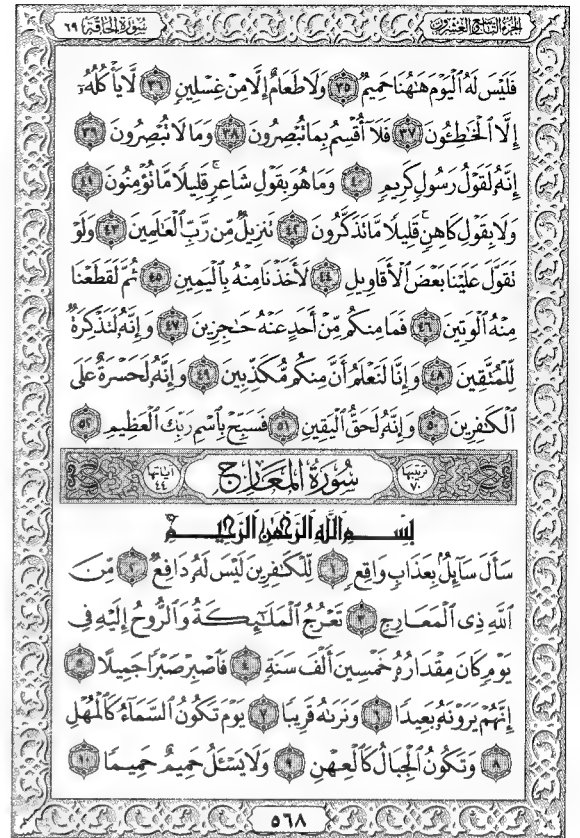 الجزء التاسع والعشرون
سورة الحاقة ٦٩
فَلَيْسَ لَهُ ٱلْيَوْمَ هَٰهُنَا حَمِيمٌ ٣٥ وَلَا طَعَامٌ إِلَّا مِنْ غِسْلِينٍ ٣٦ لَّا يَأْكُلُهُۥٓ
إِلَّا ٱلْخَٰطِـُٔونَ ٣٧ فَلَآ أُقْسِمُ بِمَا تُبْصِرُونَ ٣٨ وَمَا لَا تُبْصِرُونَ ٣٩
إِنَّهُۥ لَقَوْلُ رَسُولٍ كَرِيمٍ ٤٠ وَمَا هُوَ بِقَوْلِ شَاعِرٍ ۚ قَلِيلًا مَّا تُؤْمِنُونَ ٤١
وَلَا بِقَوْلِ كَاهِنٍ ۚ قَلِيلًا مَّا تَذَكَّرُونَ ٤٢ تَنزِيلٌ مِّن رَّبِّ ٱلْعَٰلَمِينَ ٤٣ وَلَوْ
تَقَوَّلَ عَلَيْنَا بَعْضَ ٱلْأَقَاوِيلِ ٤٤ لَأَخَذْنَا مِنْهُ بِٱلْيَمِينِ ٤٥ ثُمَّ لَقَطَعْنَا
مِنْهُ ٱلْوَتِينَ ٤٦ فَمَا مِنكُم مِّنْ أَحَدٍ عَنْهُ حَٰجِزِينَ ٤٧ وَإِنَّهُۥ لَتَذْكِرَةٌ
لِّلْمُتَّقِينَ ٤٨ وَإِنَّا لَنَعْلَمُ أَنَّ مِنكُم مُّكَذِّبِينَ ٤٩ وَإِنَّهُۥ لَحَسْرَةٌ عَلَى
ٱلْكَٰفِرِينَ ٥٠ وَإِنَّهُۥ لَحَقُّ ٱلْيَقِينِ ٥١ فَسَبِّحْ بِٱسْمِ رَبِّكَ ٱلْعَظِيمِ ٥٢
ترتيبها ٧٠ سُورَةُ المَعَارِجِ آياتها ٤٤
بِسْمِ ٱللَّهِ ٱلرَّحْمَٰنِ ٱلرَّحِيمِ
سَأَلَ سَآئِلٌۢ بِعَذَابٍ وَاقِعٍ ١ لِّلْكَٰفِرِينَ لَيْسَ لَهُۥ دَافِعٌ ٢ مِّنَ
ٱللَّهِ ذِى ٱلْمَعَارِجِ ٣ تَعْرُجُ ٱلْمَلَٰٓئِكَةُ وَٱلرُّوحُ إِلَيْهِ فِى
يَوْمٍ كَانَ مِقْدَارُهُۥ خَمْسِينَ أَلْفَ سَنَةٍ ٤ فَٱصْبِرْ صَبْرًا جَمِيلًا ٥
إِنَّهُمْ يَرَوْنَهُۥ بَعِيدًا ٦ وَنَرَىٰهُ قَرِيبًا ٧ يَوْمَ تَكُونُ ٱلسَّمَآءُ كَٱلْمُهْلِ
٨ وَتَكُونُ ٱلْجِبَالُ كَٱلْعِهْنِ ٩ وَلَا يَسْـَٔلُ حَمِيمٌ حَمِيمًا ١٠
٥٦٨